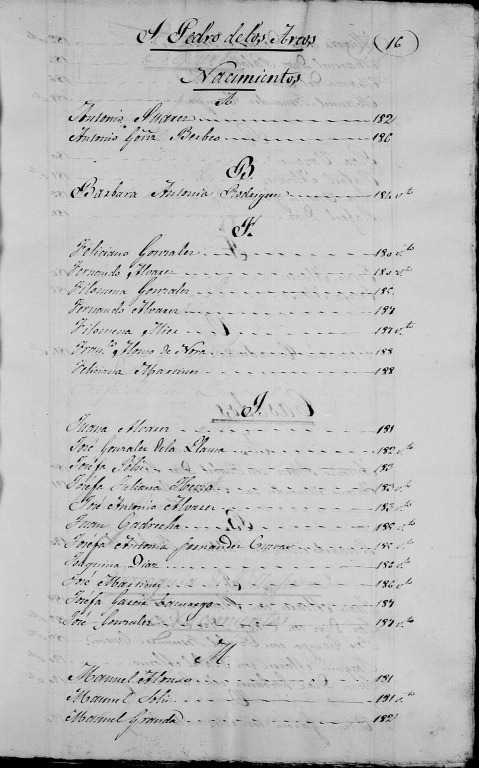 S. Pedro de los Arcos
16
Nacimientos
A.
Antonio Suarez 182
Antonio Gonz. Berbeo 186
B
Barbara Antonia Rodriguez 184 v.to
F.
Feliciano Gonzalez 180 v.to
Fernando Alvarez 180 v.to
Filomena Gonzalez 185
Fernando Alvarez 187
Filomena Mier 187 v.to
Fran.co Alonso de Nora 188
Feliciana Martinez 188
J.
Juana Alvarez 181
José Gonzalez de la Llana 182 v.to
Josefa Solis 183
Josefa Juliana 183 v.to
José Antonio Alvarez 183 v.to
Juan Cadrecha 185 v.to
Joséfa Antonia Fernandez Cuevas 185 v.to
Joaquina Diaz 186 v.to
José Martinez 186 v.to
Joséfa Garcia 187
José Gonzalez 187 v.to
M.
Manuel Alonso 181
Manuel Solis 181 v.to
Manuel Granda 182